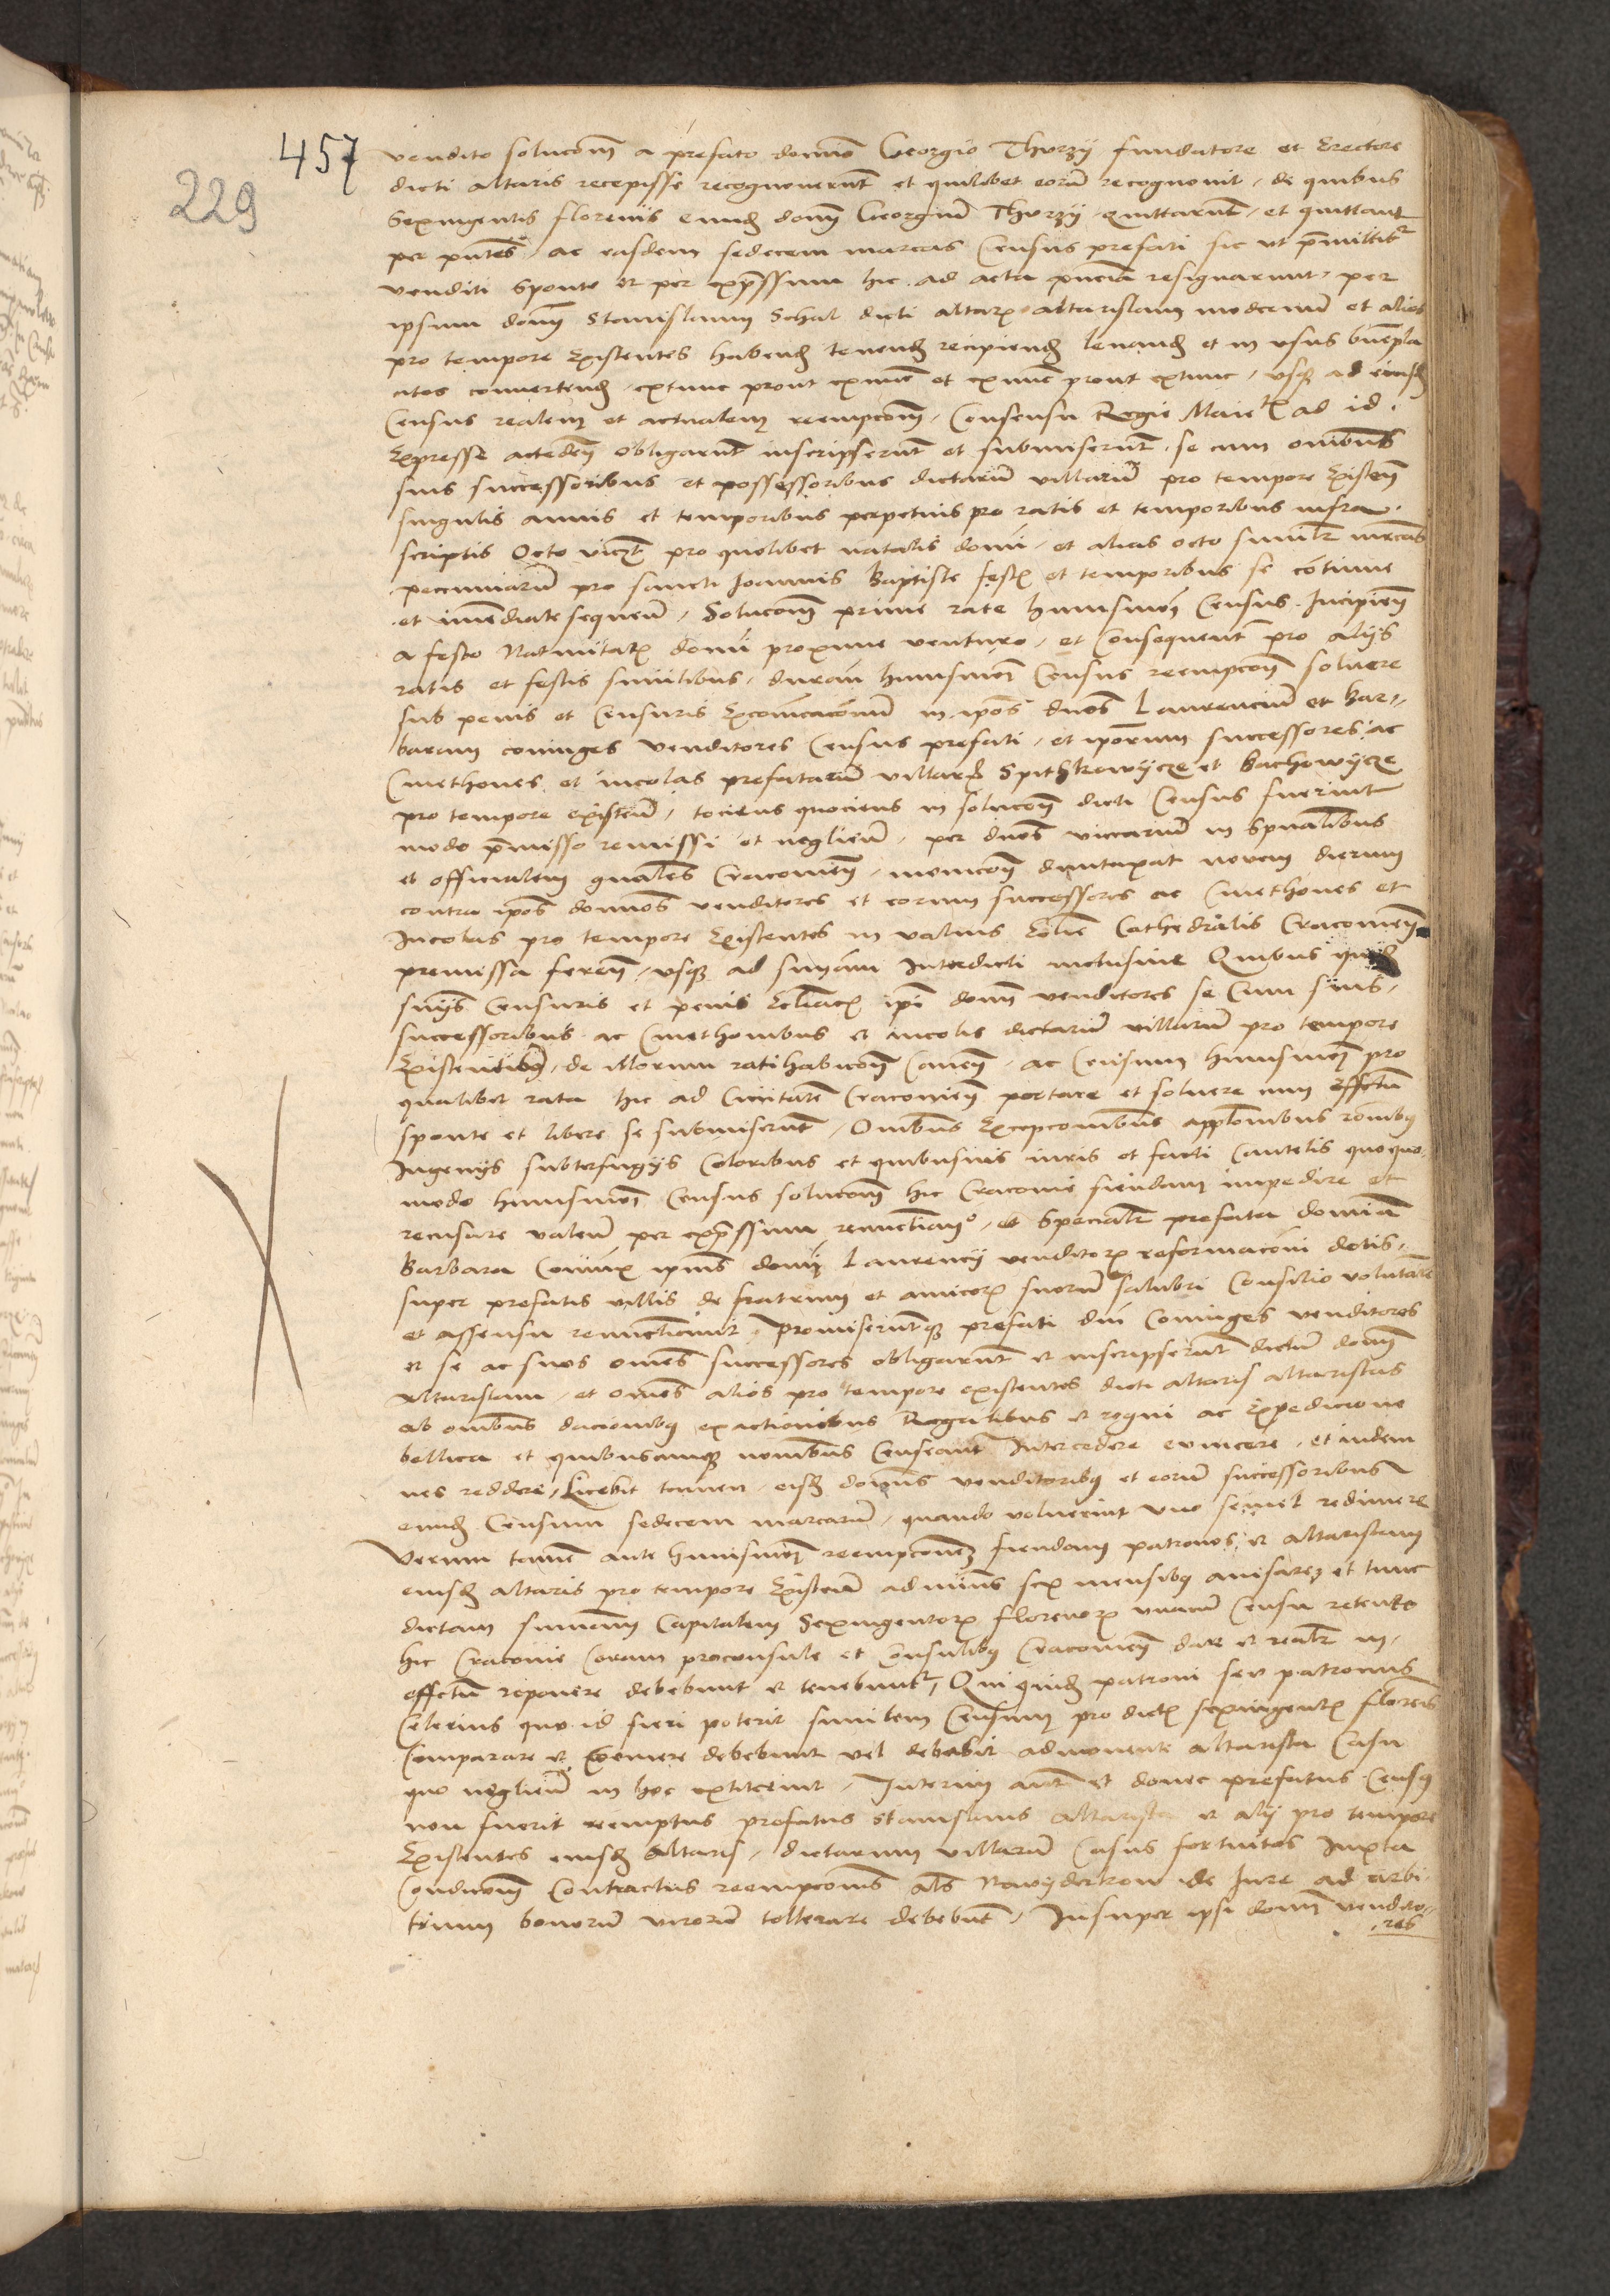 457
229
vendito solucom̄ a prefato domīo Georgio Thurzy fundatore et Erectore
dicti altaris recepisse recognouerūt et quilibet eorū recognouit, de quibus
Sexingentis florenis eund domū Georgiū Thurzy quittarūt, et quittant
per pn̄tes, ac easdem sedecem marcas Census prefati sic vt p̄mittitr
venditi sponte et per exp̄ssum hic ad acta pn̄cia resignarunt, per
ipsum domū Stanislaum Schal dicti altarꝭ altaristam modernū et alios
pro tempore Existentes habend tenend recipiend leuand et in vsus bn̄epla
citos conuertend, extunc prout exnūc et exnūc prout extunc, vsqꝫ ad eiusd
Census realem et actualem reempcom̄, Consensu Regie Maiettꝭ ad id
Expresse accedeñ Obligarūt inscripserūt et submiserūt, se cum om̄ibus
suis successoribus et possessoribus dictarū villarū pro tempore Existeñ
singulis annis et temporibus perpetuis pro ratis et temporibus infra
scriptis Octo vicꝫt pro quolibet natalis domī, et alias octo similr mrcas
pecuniarū pro sancti Joannis Baptiste festꝭ et temporibus se cōtinue
et im̄ediate sequeñ, Solucom̄ prime rate huiusmōi Census Incipieñ
a festo Natiuitatꝭ domī proxime venturo, et Consequent pro alijs
ratis et festis similibus, durañ huiusmōi Census reempcom̄ soluere
sub penis et Censuris Excōicacōnū in ip̄os dn̄os Laurenciū et Bar-
baram coniuges venditores Census prefati, et ip̄orum successores ac
Cmethones et incolas prefatarū villarꝭ Spithkowycze et Bachowycze
pro tempore existeñ, tociens quociens in solucom̄ dicti Census fuerint
modo p̄misso remissi et negligeñ, per dn̄os vicariū in Spūalibus
et officialem gn̄ales Cracouieñ, monicom̄ dumtaxat nouem dierum
contra ip̄os domīos venditores et eorum successores ac Cmethones et
Incolas pro tempore Existentes in valuis Eclīe Cathedralis Cracouieñ
premissa fereñ, vsqꝫ ad sum̄am Interdicti inclusiue Quibus quid
sn̄ijs Censuris et penis Eclīacꝭ ip̄i domī venditores se Cum suis,
successoribus ac Cmethonibus et incolis dictarū villarū pro tempore
Existentibus, de illorum ratihabicom̄ Caueñ, ac Censum huiusmōi pro
qualibet rata hic ad Ciuitatē Cracouieñ portare et soluere cum effectu
sponte et libere se submiserūt, Om̄ibus Excepcōnibus applōnibus rōnibus
Ingenijs subterfugijs Coloribus et quibusuis iuris et facti Cautelis quoquo
modo huiusmōi Census solucom̄ hic Cracouie fiendam impedire et
recusare valeñ per exp̄ssum renūctiamº, et specialr prefata domīa
Barbara Coniūx ip̄ius domī Laurencij venditorꝭ reformacōni dotis,
super prefatis villis de fratrum et amicorꝭ suorū salubri Consilio volūtate
et assensu renūctiauit, Promiserūtqꝫ prefati dn̄i Coniuges venditores
et se ac suos om̄es successores obligarūt et inscripserūt dictū domū
altaristam, et om̄es alios pro tempore existentes dicti altaris altaristas
ab om̄ibus dacionibus exactionibus Regalibus et regni ac Expedicione
bellica et quibuscumqꝫ nom̄ibus Censeañt Intercedere euincere, et indem
nes reddere, Licebit tamen eisd domīs venditoribus et eorum successoribus
eund Censum sedecem marcarū, quando voluerint vno semel redimere
Verum tamē ante huiusmōi reempcōnem fiendam patronos et altaristam
eiusd altaris pro tempore Existeñ ad minus sex mensibus auisareꝫ et tunc
dictam sum̄am Capitalem Sexingentorꝭ florenorꝭ vnacū Censu retento
hic Cracouie Coram proconsule et Consulibus Cracouieñ dare et realr in
effectū reponere debebunt et tenebuntr, Qui quid patroni seu patronus
Celerius quo id fieri poterit similem Censum pro dictꝭ sexingentꝭ florenis
Comparare et Coemere debebunt vel debebit admonente altarista Casu
quo negligeñ in hoc extiterint, Interim aūt et donec prefatus Census
non fuerit reemptus prefatus Stanislaus altarista et alij pro tempore
Existentes eiusd Altaris, dictarum villarū Casus fortuitos Juxta
Condicōnem Contractus reempcōnis als Nawyderkow de Jure ad arbi
trium bonorū virorū tollerare debebūt, Insuper ipsi domī vendito-
res